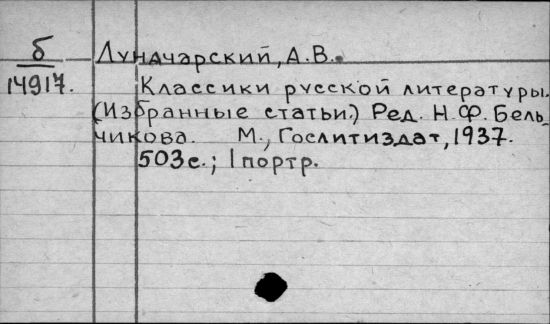 б Луначарский, А.В.
14917. Классики русской литературы.
(Избранные статьи.) Ред. Н.Ф. Бель-
чикова. М., Гослитиздат, 1937.
503с.; 1 портр.